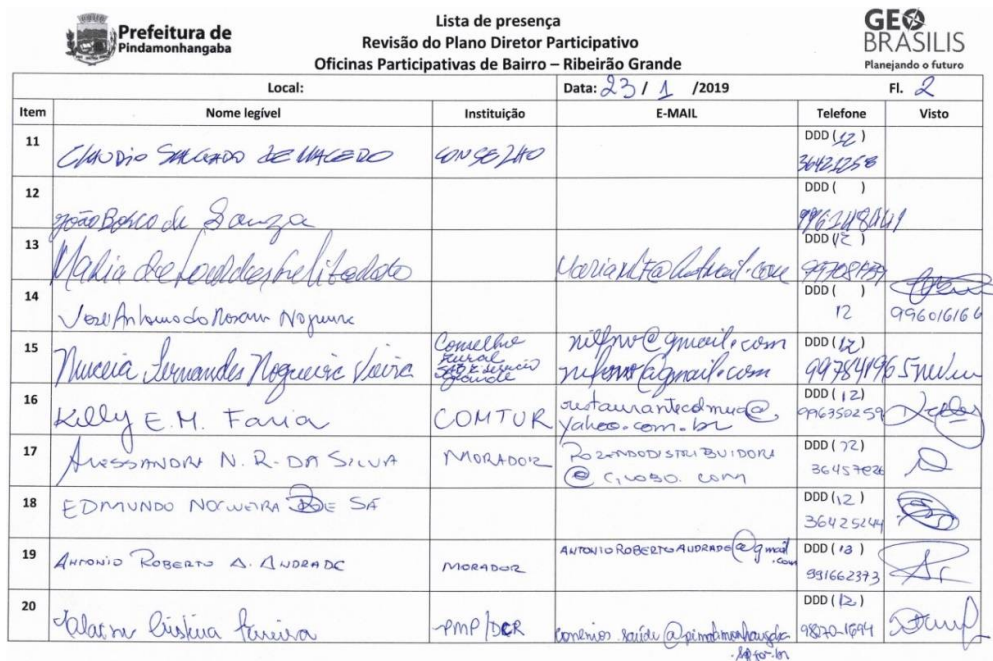 Prefeitura de
Pindamonhangaba
Lista de presença
Revisão do Plano Diretor Participativo
Oficinas Participativas de Bairro – Ribeirão Grande
GEO
BRASILIS
Planejando o futuro
Local: Data: 23 / 1 /2019 Fl. 2
Item Nome legível Instituição E-MAIL Telefone Visto
11 CLAUDIO SALGADO DE MACEDO CONSELHO DDD (12)
36421258
12 João Bosco de Souza DDD ( )
13 Maria de Lourdes DDD (12)
14 José Antonio do Rosario Nogueira DDD ( )
12 996016166
15 Fernandes Nogueira Vieira Conselho
Rural
Grande
nilfnv@gmail.com
nilfnv@gmail.com
DDD (12)
997841965
16 Kelly E.M. Faria COMTUR restaurantecolmeia@
yahoo.com.br
DDD (12)
996350259
17 ALESSANDRA N. R. DA SILVA MORADOR ROZENDODISTRIBUIDORA
@ GLOBO.COM
DDD (12)
36457626
18 EDMUNDO NOGUEIRA DE SÁ DDD (12)
36425244
19 ANTONIO ROBERTO A. ANDRADE MORADOR ANTONIOROBERTOANDRADE@gmail
.com
DDD (12)
991662373
20 Cristina PMP/DCR convenios.saude@pindamonhangaba
.sp.gov.br
DDD (12)
98170-1694